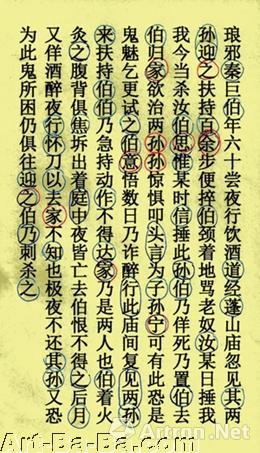 琅邪秦巨伯年六十尝夜行饮酒道经蓬山庙忽见其两
孙迎之扶持百余步便捽伯颈着地骂老奴汝某日捶我
我今当杀汝伯思惟某时信捶此孙伯乃佯死乃置伯去
伯归家欲治两孙孙惊惧叩头言为子孙宁可有此恐是
鬼魅乞更试之伯意悟数日乃诈醉行此庙间复见两孙
来扶持伯伯乃急持动作不得达家乃是两人也伯着火
灸之腹背俱焦坼出着庭中夜皆亡去伯恨不得之后月
又佯酒醉夜行怀刀以去家不知也极夜不还其孙又恐
为此鬼所困仍俱往迎之伯乃刺杀之
Artron.Net
Art-Ba-Ba.com